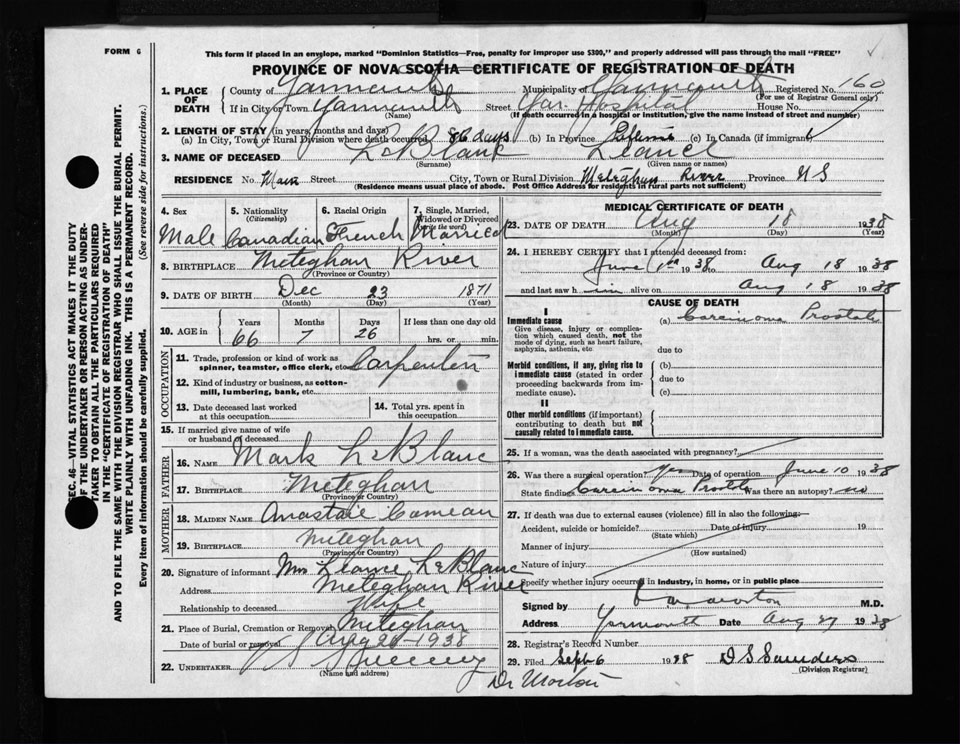 FORM 6
This form if placed in an envelope, marked "Dominion Statistics—Free, penalty for improper use $300," and properly addressed will pass through the mail "FREE"
PROVINCE OF NOVA SCOTIA—CERTIFICATE OF REGISTRATION OF DEATH
1. PLACE OF DEATH County of Yarmouth Municipality of Yarmouth Registered No. 160
(For use of Registrar General only)
If in City or Town Yarmouth Street Yar. Hospital House No.
(Name) (If death occurred in a hospital or institution, give the name instead of street and number)
2. LENGTH OF STAY (in years, months and days)
(a) In City, Town or Rural Division where death occurred 86 days (b) In Province Lifetime (c) In Canada (if immigrant)
3. NAME OF DECEASED LeBlanc
(Surname) (Given name or names)
RESIDENCE No. Main Street City, Town or Rural Division Meteghan River Province N S
(Residence means usual place of abode. Post Office Address for residents in rural parts not sufficient)
4. Sex 5. Nationality (Citizenship) 6. Racial Origin 7. Single, Married, Widowed or Divorced (write the word)
Male Canadian French Married
8. BIRTHPLACE Meteghan River
(Province or Country)
9. DATE OF BIRTH Dec 23 1871
(Month) (Day) (Year)
10. AGE in Years Months Days If less than one day
66 7 26 hrs. or min.
OCCUPATION
11. Trade, profession or kind of work as spinner, teamster, office clerk, etc. Carpenter
12. Kind of industry or business, as cotton-mill, lumbering, bank, etc.
13. Date deceased last worked at this occupation
14. Total yrs. spent in this occupation
15. If married give name of wife or husband of deceased
FATHER
16. NAME Mark LeBlanc
17. BIRTHPLACE Meteghan
(Province or Country)
MOTHER
18. MAIDEN NAME Anastaie Comeau
19. BIRTHPLACE Meteghan
(Province or Country)
20. Signature of informant Mrs LeBlanc
Address Meteghan River
Relationship to deceased Wife
21. Place of Burial, Cremation or Removal Meteghan
Date of burial or removal Aug 20-1938
22. UNDERTAKER
(Name and address)
MEDICAL CERTIFICATE OF DEATH
23. DATE OF DEATH Aug 18 1938
(Month) (Day) (Year)
24. I HEREBY CERTIFY that I attended deceased from:
June 1st 1938 to Aug 18 1938
and last saw him alive on Aug 18 1938
CAUSE OF DEATH
I
Immediate cause (a) Carcinoma Prostate
Give disease, injury or complication which caused death, not the mode of dying, such as heart failure, asphyxia, asthenia, etc.
due to
Morbid conditions, if any, giving rise to immediate cause (stated in order proceeding backwards from immediate cause).
(b)
due to
(c)
II
Other morbid conditions (if important) contributing to death but not causally related to immediate cause.
25. If a woman, was the death associated with pregnancy?
26. Was there a surgical operation? Yes Date of operation June 10 1938
State findings Carcinoma Was there an autopsy? no
27. If death was due to external causes (violence) fill in also the following:
Accident, suicide or homicide? Date of injury 19
(State which)
Manner of injury
(How sustained)
Nature of injury
Specify whether injury occurred in industry, in home, or in public place
Signed by M.D.
Address Yarmouth Date Aug 27 1938
28. Registrar's Record Number
29. Filed Sept 6 1938 D S Saunders
(Division Registrar)
Dr Morton
SEC. 46—VITAL STATISTICS ACT MAKES IT THE DUTY OF THE UNDERTAKER OR PERSON ACTING AS UNDERTAKER TO OBTAIN ALL THE PARTICULARS REQUIRED IN THE "CERTIFICATE OF REGISTRATION OF DEATH"
AND TO FILE THE SAME WITH THE DIVISION REGISTRAR WHO SHALL ISSUE THE BURIAL PERMIT.
WRITE PLAINLY WITH UNFADING INK. THIS IS A PERMANENT RECORD.
Every item of information should be carefully supplied. (See reverse side for instructions.)